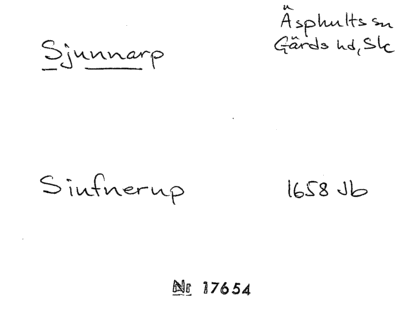 Sjunnarp
Äsphults sn
Gärds hd, Sk
Siufnerup 1658 Jb
Nr 17654